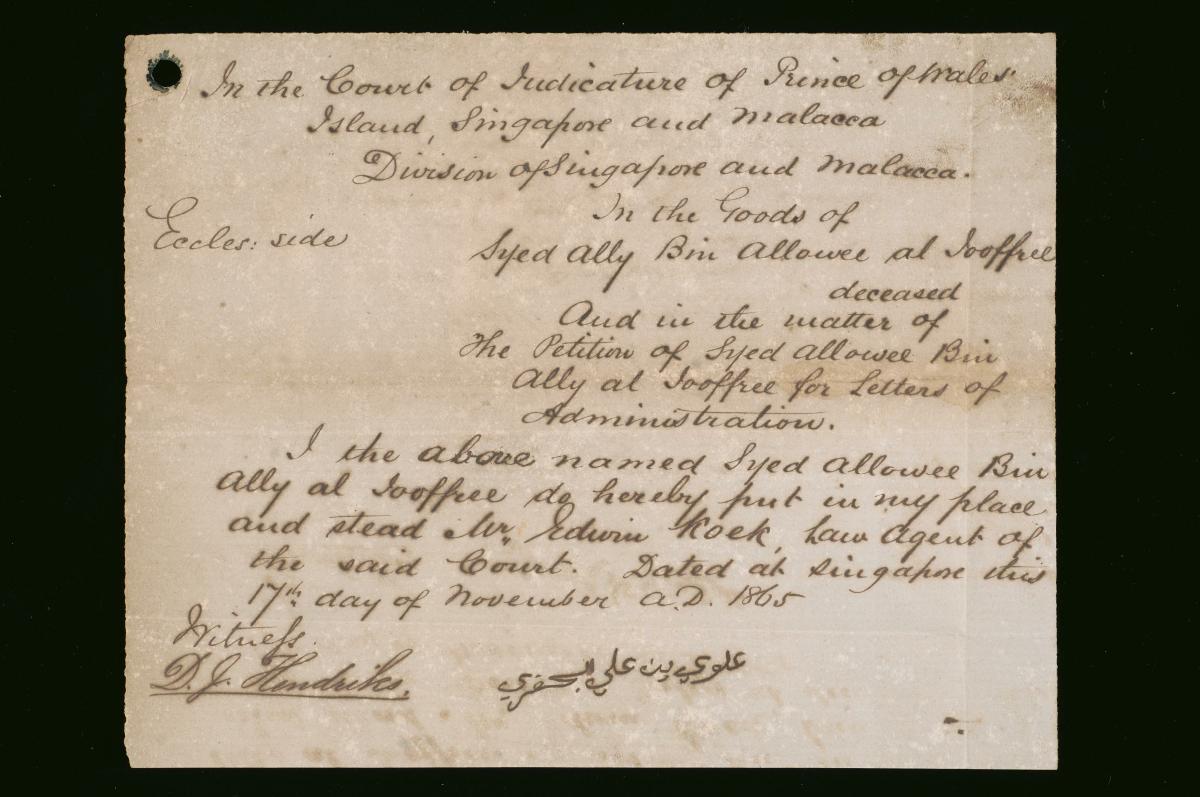 In the Court of Judicature of Prince of Wales'
Island, Singapore and Malacca
Division of Singapore and Malacca.
In the Goods of
Eccles: side
Syed Ally Bin Allowee al Jooffree
deceased
And in the matter of
The Petition of Syed Allowee Bin
Ally al Jooffree for Letters of
Administration.
I the above named Syed Allowee Bin
Ally al Jooffree do hereby put in my place
and stead Mr. Edwin Koek, Law Agent of
the said Court. Dated at Singapore this
17th day of November A.D. 1865
Witness.
D. J. Hendriks.
علوي بن علي الجفري